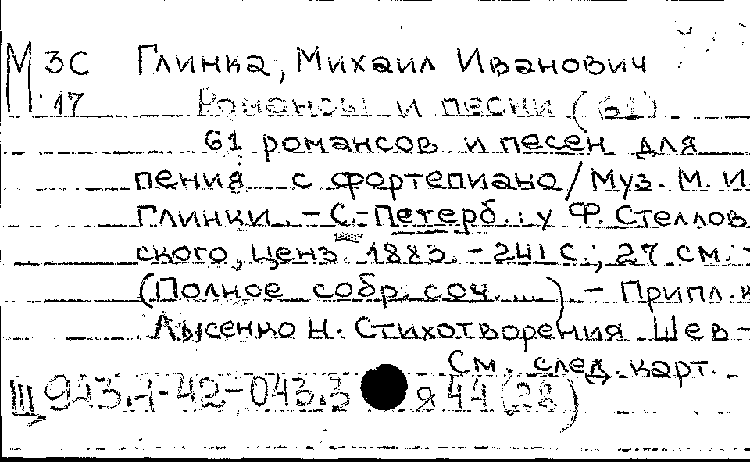 М 3С Глинка, Михаил Иванович
17 Романсы и песни (61)
61 романсов и песен для
пения с фортепиано/Муз. М. И.
Глинки. - С.-Петерб.: у Ф. Стеллов
ского, ценз. 1883. - 241 с.; 27 см. -
(Полное собр. соч. ...) - Припл. к
Лысенко Н. Стихотворения Шев-
См. след. карт.
III 943.1-42-043.3 я 44 (28)